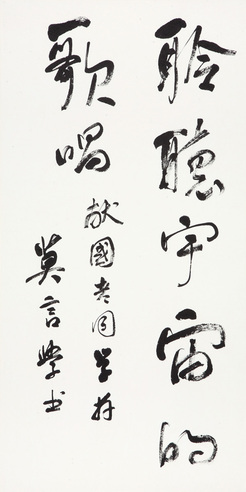 聆聽宇宙的
歌唱
献國老同學存
莫言學书